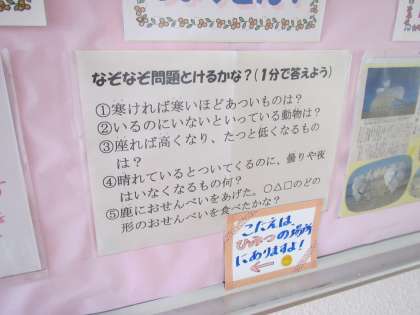 なぞなぞ問題とけるかな？(１分で答えよう)
①寒ければ寒いほどあついものは？
②いるのにいないといっている動物は？
③座れば高くなり、たっと低くなるもの
は？
④晴れているとついてくるのに、曇りや夜
はいなくなるもの何？
⑤鹿におせんべいをあげた。○△□のどの
形のおせんべいを食べたかな？
こたえは、
ひみつの場所
にありますよ！